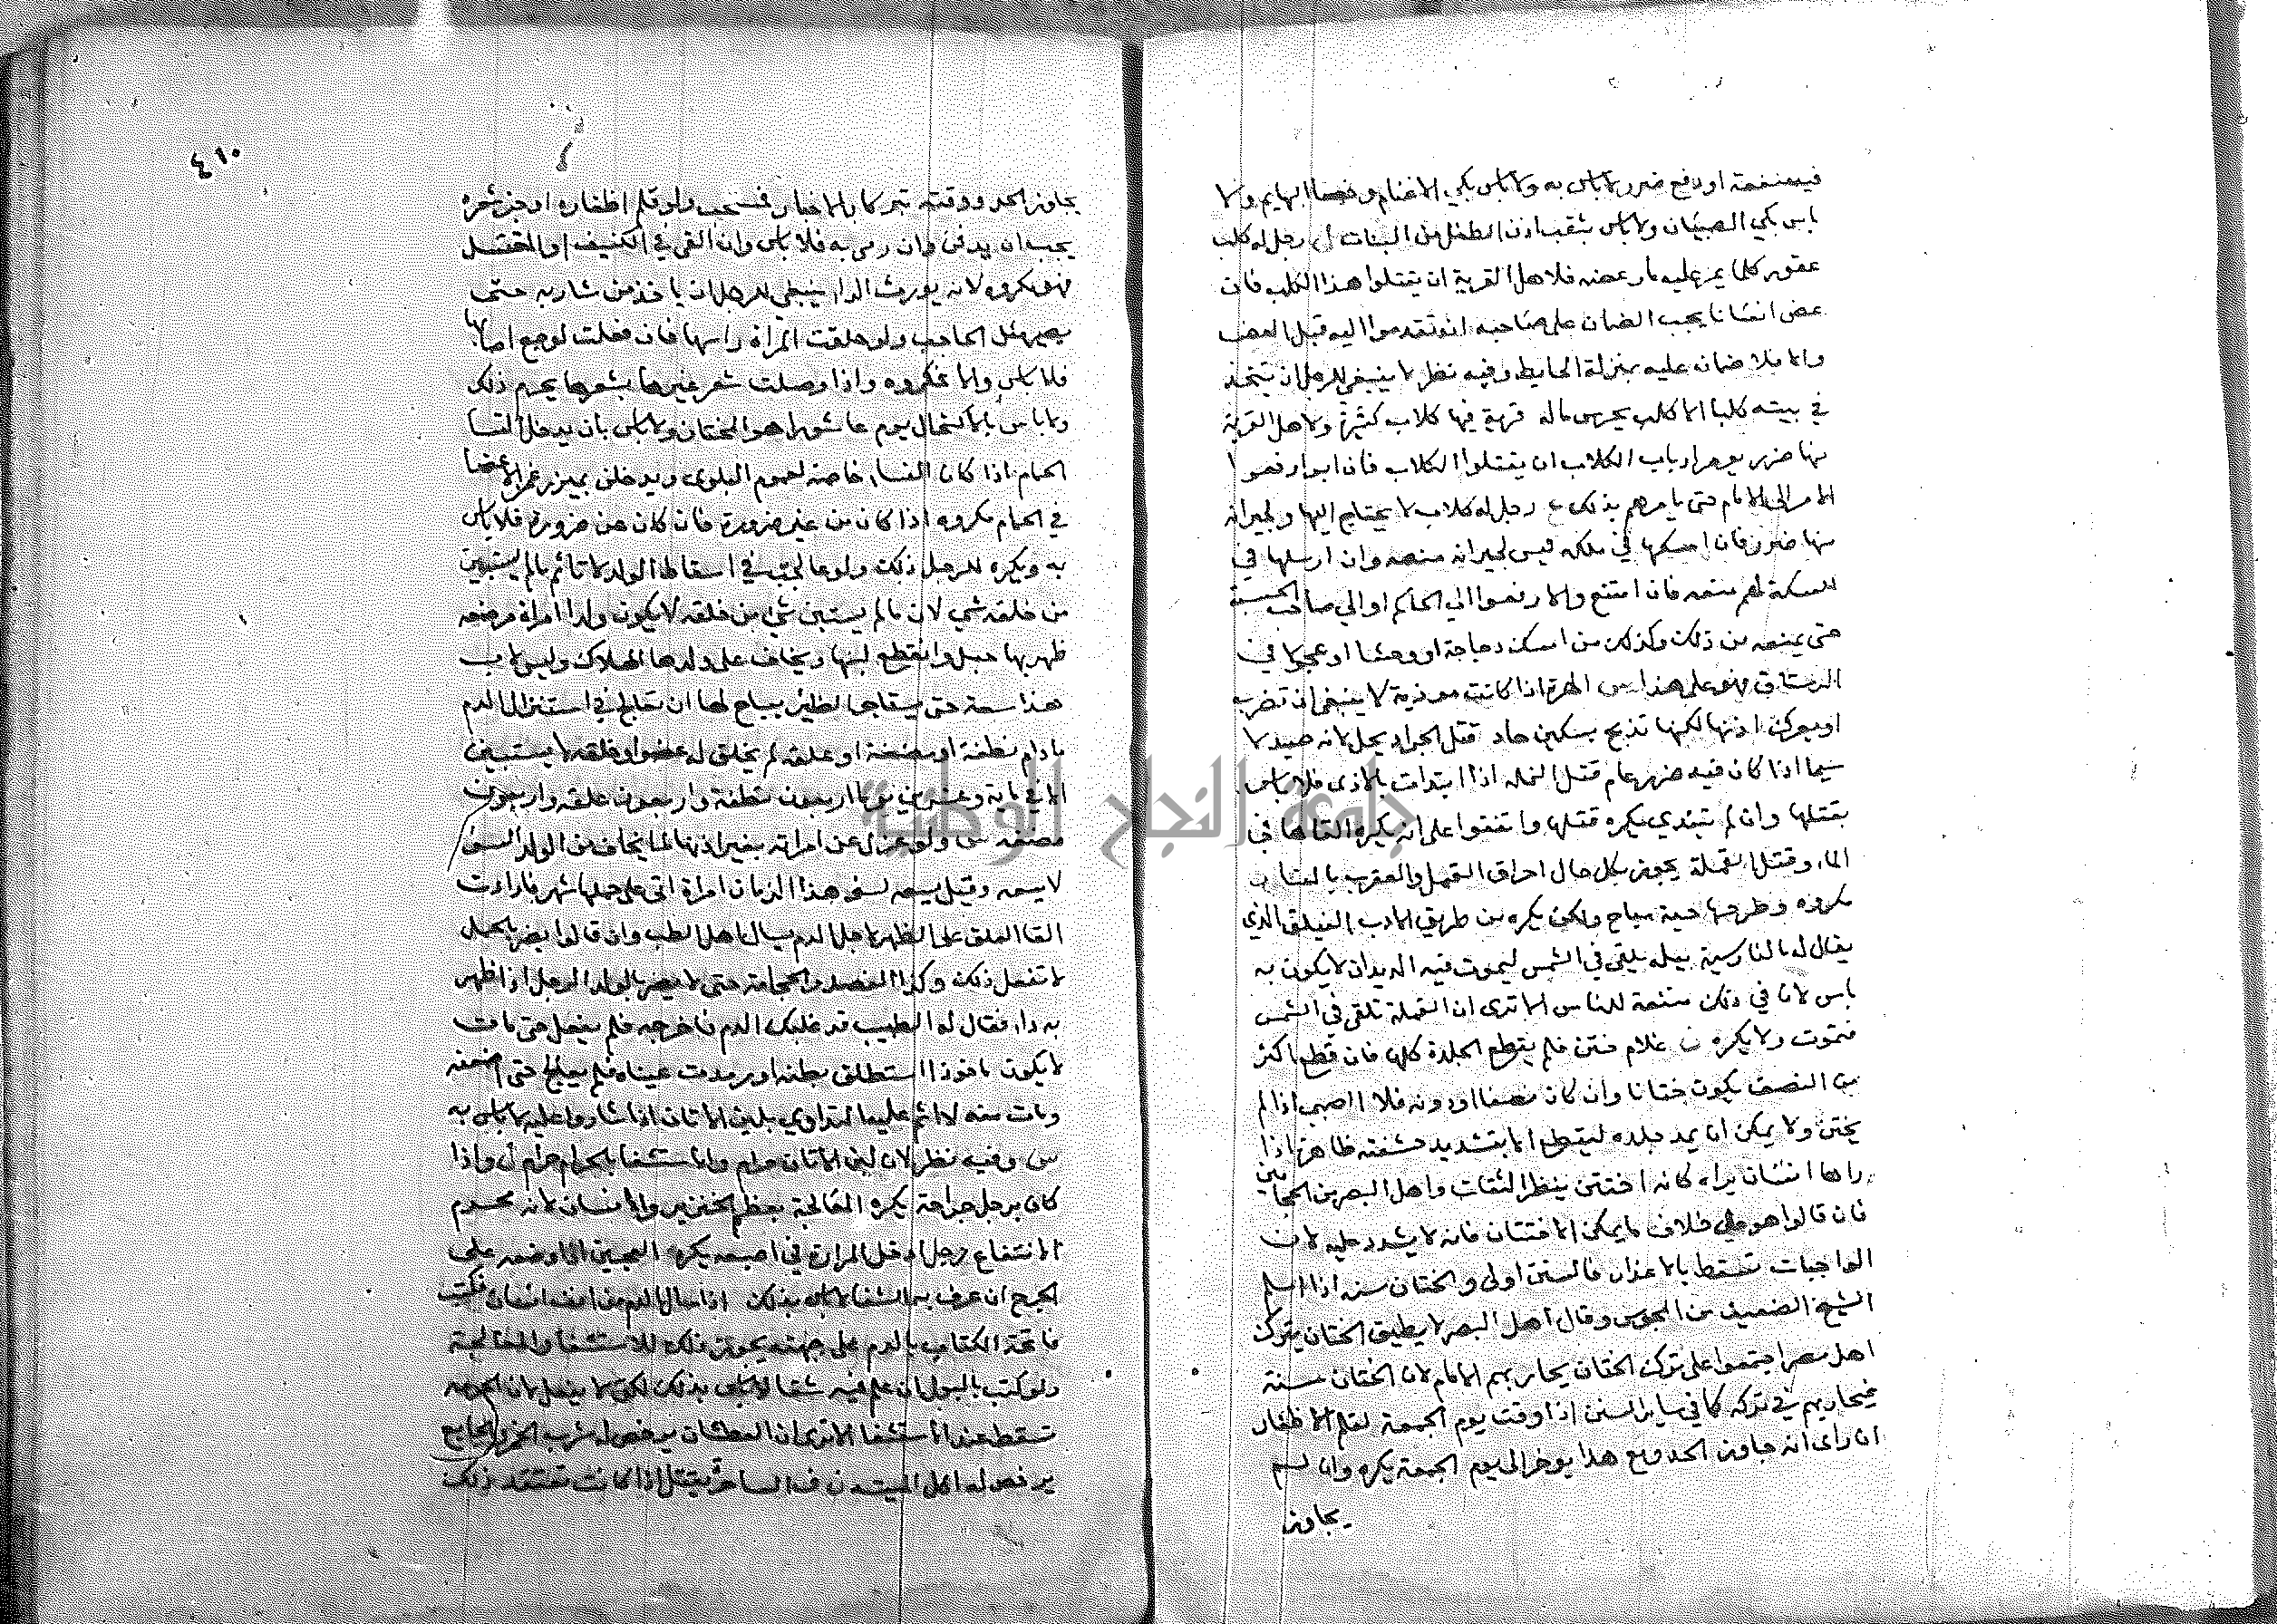 فيه منفعة او دفع ضرر لاباس به ولاباس بكي الاغنام وخصا البهايم ولا
باس بكي الصبيان ولاباس بثقب اذن الطفل من البنات رجل له كلب
عقور كلما يمر عليه مار عضه فلاهل القرية ان يقتلوا هذا الكلب فان
عض انسانا يجب الضمان على صاحبه ان تقدموا اليه قبل العض
والا فلا ضمان عليه بمنزلة الحايط وفيه نظر لا ينبغي للرجل ان يتخذ
في بيته كلبا الا كلب يحرس ماله قرية فيها كلاب كثيرة ولاهل القرية
منها ضرر يومر ارباب الكلاب ان يقتلوا الكلاب فان ابوا رفعوا
الامر الى الامام حتى يامرهم بذلك رجل له كلاب لا يحتاج اليها ولجيرانه
منها ضرر فان امسكها في ملكه ليس لجيرانه منعه وان ارسلها في
السكة لهم منعه فان امتنع والا رفعوا الى الحاكم او الى صاحب الحسبة
حتى يمنعه من ذلك وكذلك من امسك دجاجة او وحشا او عجولا في
الرستاق فهو على هذا الهرة اذا كانت موذية لا ينبغي ان تضرب
او يعرك اذنها لكنها تذبح بسكين حاد قتل الجراد يحل لانه صيد لا
سيما اذا كان فيه ضرر عام قتل النمله اذا ابتدات بالاذى فلاباس
بقتلها وان لم تبتدي يكره قتلها واتفقوا على انه يكره القاها في
الماء وقتل القملة يجوز بكل حال احراق القمل والعقرب بالنار
مكروه وطرحها حية مباح ولكن يكره من طريق الادب الفيلق الذي
يقال له بالفارسية بيله يلقى في الشمس ليموت فيه الديدان لا يكون به
باس لان في ذلك منفعة للناس الا ترى ان السمكة تلقى في الشمس
فتموت ولا يكره غلام ختن فلم يقطع الجلدة كلها فان قطع اكثر
من النصف يكون ختانا وان كان نصفا او دونه فلا الصبي اذا لم
يختن ولا يمكن ان يمد جلده ليقطع الا بتشديد حشفته ظاهرة اذا
راها انسان يراه كانه اختتن ينظر الثقات واهل البصر من الحجامين
فان قالوا هو على خلاف ما يمكن الاختتان فانه لا يشدد عليه لان
الواجبات تسقط بالاعذار فالسنن اولى والختان سنه اذا اسلم
الشيخ الضعيف من المجوس وقال اهل البصر لا يطيق الختان يترك
اهل مصر اجتمعوا على ترك الختان يحاربهم الامام لان الختان سنة
فيحاربهم في تركه كما في ساير السنن اذا وقت يوم الجمعة لقلم الاظفار
ان راى انه جاوز الحد ومع هذا يوخر الى يوم الجمعة يكره وان لم
يجاوز
٤١٠
يجاوز الحد ووقته تبركا بالاخبار فمستحب ولو قلم اظفاره او جز شعره
يجب ان يدفن وان رمى به فلا باس وان القى في الكنيف او المغتسل
فهو مكروه لانه يورث الداء ينبغي للرجل ان ياخذ من شاربه حتى
يصير مثل الحاجب ولو حلقت المراة راسها فان فعلت لوجع اصابها
فلا باس والا فمكروه واذا وصلت شعر غيرها بشعرها يحرم ذلك
ولاباس بالاكتحال يوم عاشوراء هو المختار ولاباس بان يدخل النسا
الحمام اذا كان للنساء خاصة لعموم البلوى ويدخلن بميزر غمز الاعضا
في الحمام مكروه اذا كان من غير ضرورة فان كان عن ضرورة فلاباس
به ويكره للرجل ذلك ولو عالجت في اسقاط الولد لا تاثم ما لم يستبين
من خلقه شي لان ما لم يستبن شي من خلقه لا يكون ولدا امراة مرضعه
ظهر بها حبل وانقطع لبنها ويخاف على ولدها الهلاك وليس لاب
هذا سعة حتى يستاجر الظئر يباح لها ان تعالج في استنزال الدم
مادام نطفة او مضغة او علقة لم يخلق له عضو او خلقه لا يستبين
الا في ماية وعشرين يوما اربعون نطفة واربعون علقة واربعون
مضغه ولو عزل عن امراته بغير اذنها لما يخاف من الولد السو
لا يسعه وقيل يسعه لسو هذا الزمان امراة اتى على حملها شهر فارادت
القا العلق على الظهر لاجل الدم يسال اهل الطب وان قالوا يضر بالحمل
لا تفعل ذلك وكذا الفصد والحجامة حتى لا يضر بالولد الرجل اذا ظهر
به داء فقال له الطبيب قد غلبك الدم فاخرجه فلم يفعل حتى مات
لا يكون ماخوذا استطلق بطنه او رمدت عيناه فلم يعالج حتى اضعفه
ومات منه لا اثم عليه التداوي بلبن الاتان اذا اشاروا عليه لاباس به
وفيه نظر لان لبن الاتان حرام والاستشفا بالحرام حرام واذا
كان برجل جراحة يكره المعالجة بعظم الخنزير والانسان لانه محرم
الانتفاع رجل ادخل المرارة في اصبعه يكره العجين اذا وضعه على
الجرح ان عرف به الشفا لاباس بذلك اذا سال الدم من انف انسان فكتب
فاتحة الكتاب بالدم على جبهته يجوز ذلك للاستشفا والمعالجة
ولو كتب بالبول ان علم فيه شفا لاباس بذلك لكن لا ينقل لان الحرمه
تسقط عند الاستشفا الا ترى ان العطشان يرخص له شرب الخمر والجايع
يرخص له اكل الميتة الساحر يقتل اذا كانت تعتقد ذلك